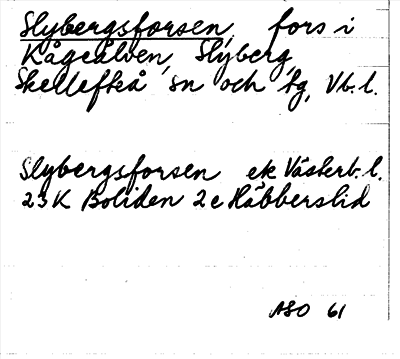 Slybergsforsen, fors i
Kågeälven, Slyberg,
Skellefteå sn och tg, Vb. l.
Slybergsforsen ek Västerb. l.
23K Boliden 2e Häbberslid
ASO 61